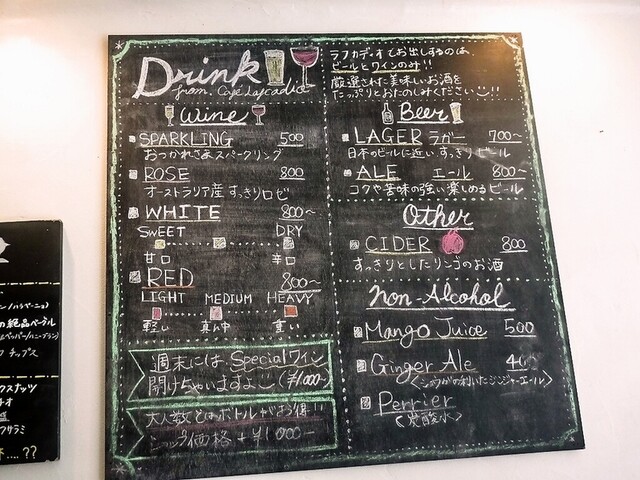 Drink
from. Café Lafcadio
ラフカディオでお出しするのは、
ビールとワインのみ!!
厳選された美味しいお酒を
たっぷりとおたのしみください!!
Wine
SPARKLING 500
おつかれさまスパークリング
ROSE 800
オーストラリア産 すっきりロゼ
WHITE 800~
SWEET DRY
甘口 辛口
RED 800~
LIGHT MEDIUM HEAVY
軽い 真ん中 重い
週末には、Specialワイン
開けちゃいますよ (¥1000~)
大人数とはボトルがお得!!
ショップ価格+¥1000-
Beer
LAGER ラガー 700~
日本のビールに近い、すっきりビール
ALE エール 800~
コクや苦味の強い楽しめるビール
Other
CIDER 800
すっきりとしたリンゴのお酒
Non-Alcohol
Mango Juice 500
Ginger Ale
<ショウガの利いたジンジャーエール>
Perrier
<炭酸水>
の絶品ベーグル
チップス
クスナッツ
チオ
サラミ
....??